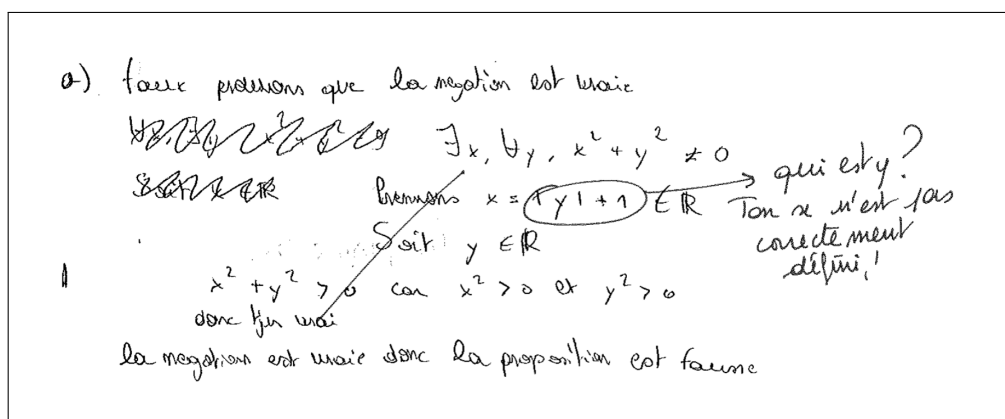 a) faux prouvons que la negation est vraie
∃x, ∀y, x² + y² ≠ 0
Prenons x = |y| + 1 ∈ ℝ
qui est y ?
Ton x n'est pas
correctement
défini !
Soit y ∈ ℝ
x² + y² > 0 car x² > 0 et y² > 0
donc tjrs vrai
la negation est vraie donc la proposition est fausse